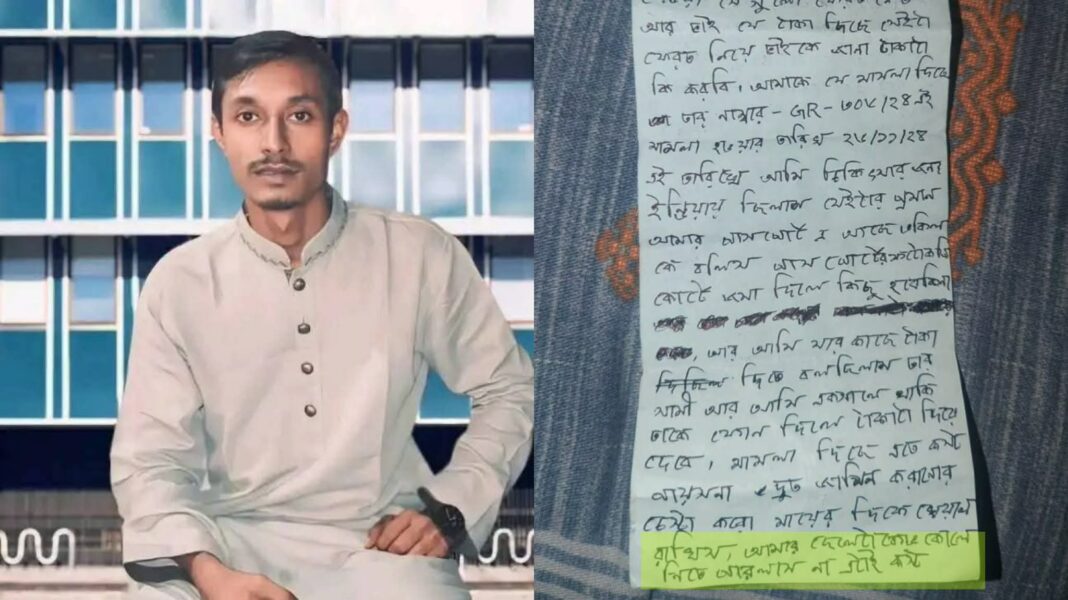 আর ভাই যে টাকা দিছে সেইটা
ফেরত নিয়ে ভাইকে জানা টাকাটা
কি করবি, আমাকে যে মামলা দিছে
তার নাম্বার - GR - ৩০৮/২৪ এই
মামলা হওয়ার তারিখ ২৮/১১/২৪
এই তারিখে আমি চিকিৎসার জন্য
ইন্ডিয়ায় ছিলাম সেইটার প্রমান
আমার পাসপোর্ট এ আছে উকিল
কে বলিস পাসপোর্টের ফটোকপি
কোর্টে জমা দিলে কিছু হবেকিনা
, আর আমি যার কাছে টাকা
দিতে বলছিলাম তার
স্বামী আর আমি একসাথে থাকি
তাকে ফোন দিলে টাকাটা দিয়ে
দেবে, মামলা দিছে এতে কষ্ট
পায়মনা দ্রুত জামিন করানোর
চেষ্টা করো মায়ের দিকে খেয়াল
রাখিস, আমার ছেলেটাকে কোলে
নিতে পারলাম না এটাই কষ্ট